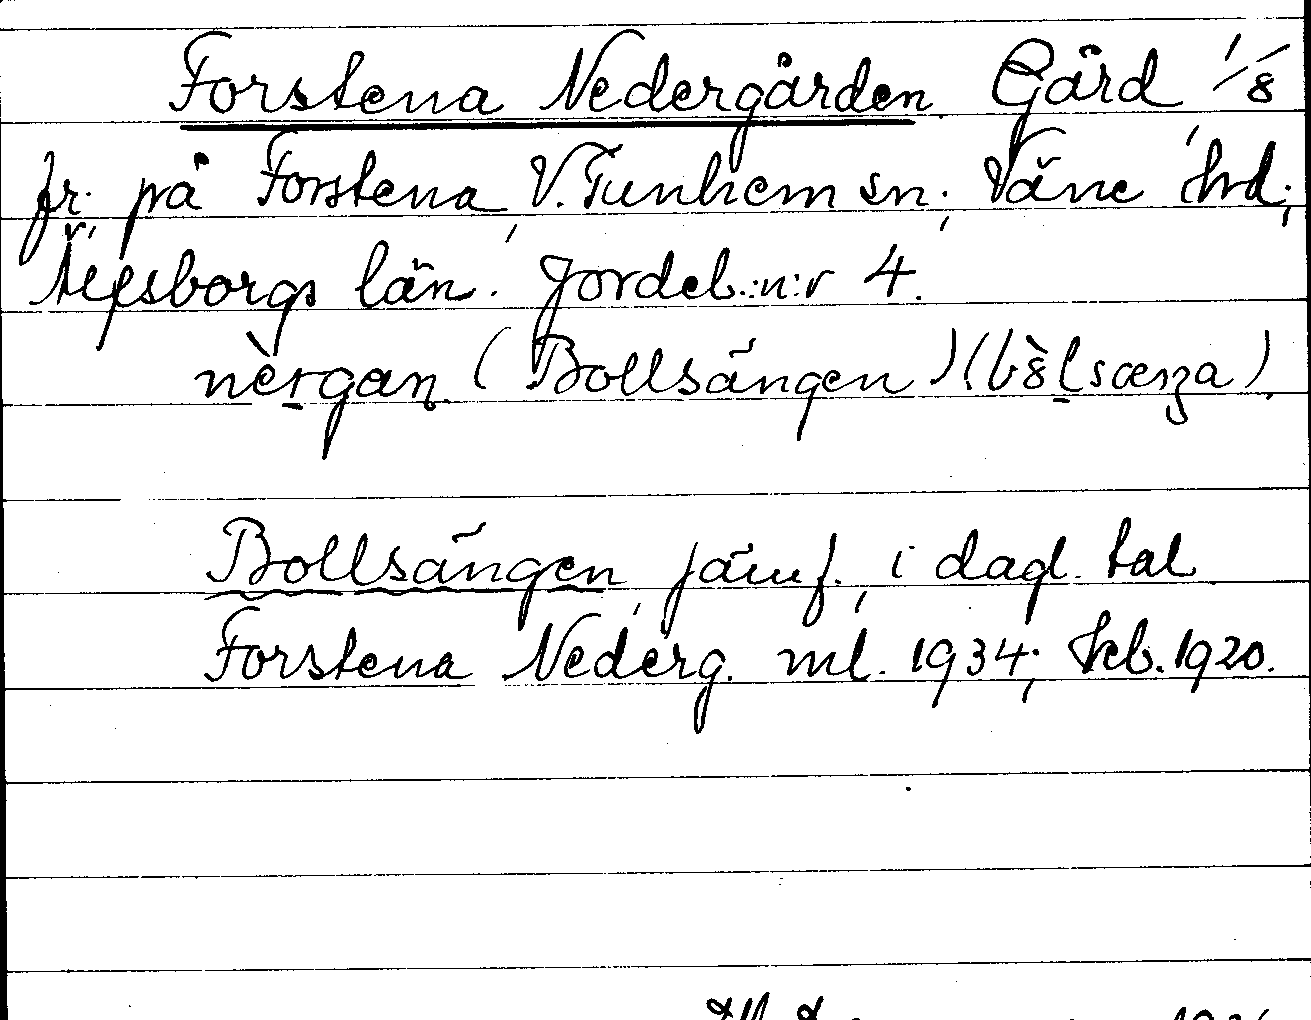 Forstena Nedergården. Gård 1/8
fr. på Forstena, V. Tunhem sn; Väne hd;
Älfsborgs län. Jordeb.:n:r 4.
nèrgaṇ. (Bollsängen) (b
Bollsängen, jämf., i dagl. tal
Forstena Nederg. ml. 1934;
1920.